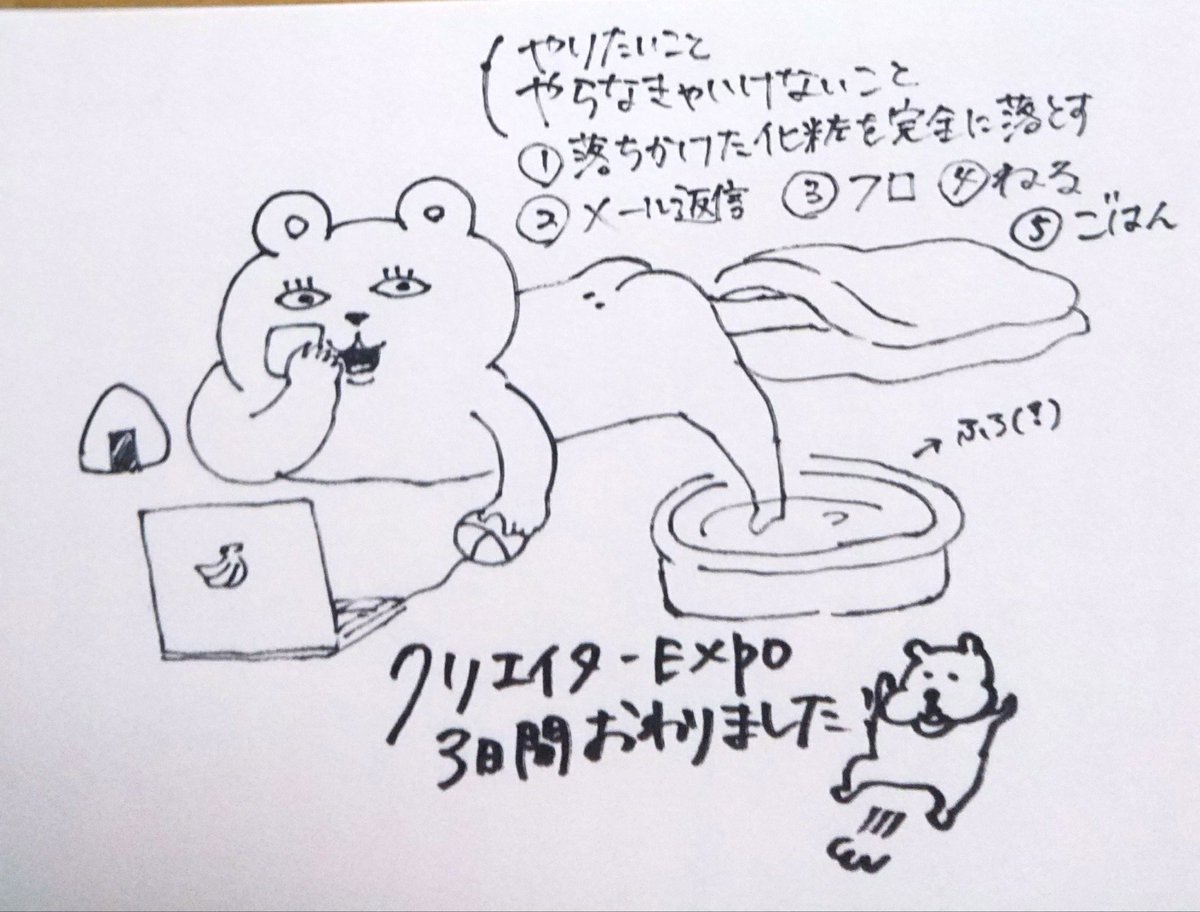 やりたいこと
やらなきゃいけないこと
① 落ちかけた化粧を完全に落とす
② メール返信 ③ フロ ④ ねる
⑤ ごはん
→ ふろ(き)
クリエイターExpo
3日間おわりました